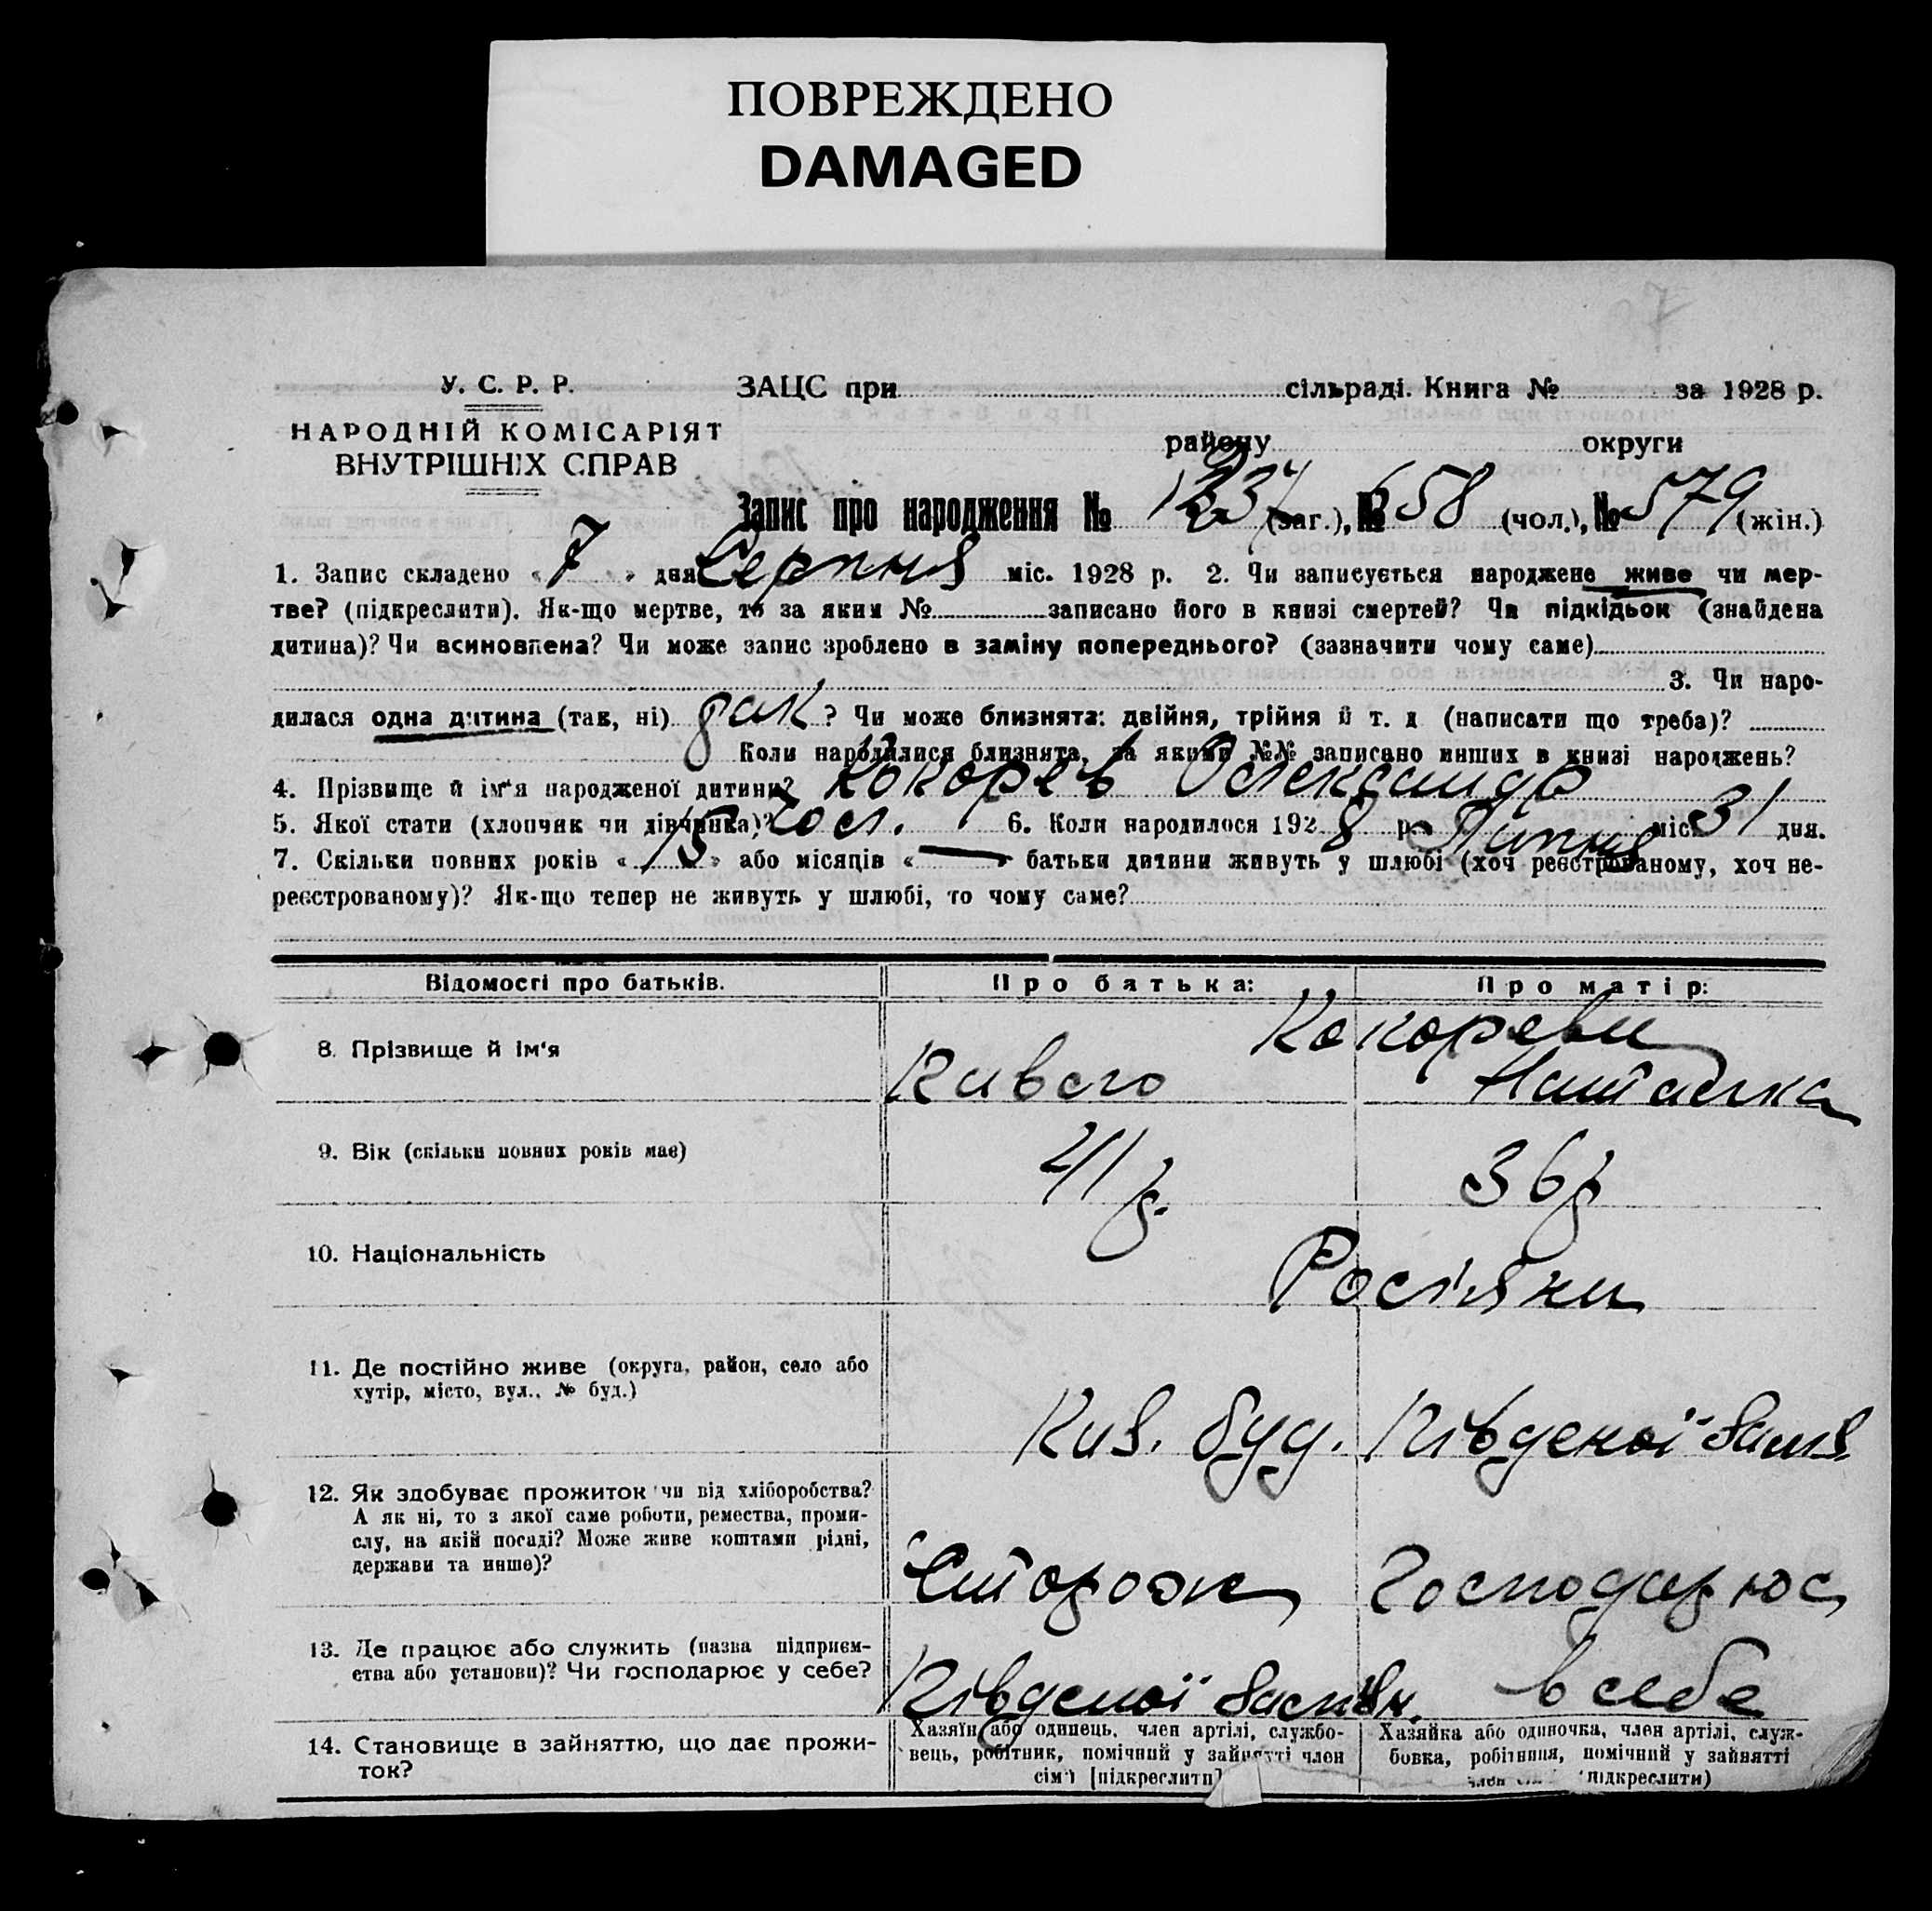 ПОВРЕЖДЕНО
DAMAGED
У. С. Р. Р.
НАРОДНІЙ КОМІСАРІЯТ
ВНУТРІШНІХ СПРАВ
ЗАЦС при сільраді. Книга № за 1928 р.
району округи
Запис про народження № (заг.), № 658 (чол.), № 579 (жін.)
1. Запис складено « 7 » дня Серпня міс. 1928 р. 2. Чи записується народжене живе чи мер-
тве? (підкреслити). Як-що мертве, то за яким № записано його в книзі смертей? Чи підкідьок (знайдена
дитина)? Чи всиновлена? Чи може запис зроблено в заміну попереднього? (зазначити чому саме)
3. Чи наро-
дилася одна дитина (так, ні) ? Чи може близнята: двійня, трійня й т. д (написати що треба)?
Коли народилися близнята, за якими №№ записано инших в книзі народжень?
4. Прізвище й ім'я народженої дитини? Кокорев Олександр
5. Якої стати (хлопчик чи дівчинка)? чол. 6. Коли народилося 1928 р. Липня міс. 31 дня.
7. Скільки повних років « 15 » або місяців « — » батьки дитини живуть у шлюбі (хоч реєстрованому, хоч не-
реєстрованому)? Як-що тепер не живуть у шлюбі, то чому саме?
Відомості про батьків. Про батька: Про матір:
8. Прізвище й ім'я Кокореви
Наталка
9. Вік (скільки повних років має) 41 р. 36 р
10. Національність Росіяни
11. Де постійно живе (округа, район, село або
хутір, місто, вул., № буд.)
буд. Південої
12. Як здобуває прожиток чи від хліборобства?
А як ні, то з якої саме роботи, ремества, проми-
слу, на якій посаді? Може живе коштами рідні,
держави та инше)?
Сторож Господарює
13. Де працює або служить (назва підприєм-
ства або установи)? Чи господарює у себе?
Південої в себе
14. Становище в зайняттю, що дає прожи-
ток?
Хазяїн або одинець, член артілі, службо-
вець, робітник, помічний у зайнятті член
сім'ї [підкреслити]
Хазяйка або одиночка, член артілі, служ-
бовка, робітниця, помічний у зайнятті
член (підкреслити)